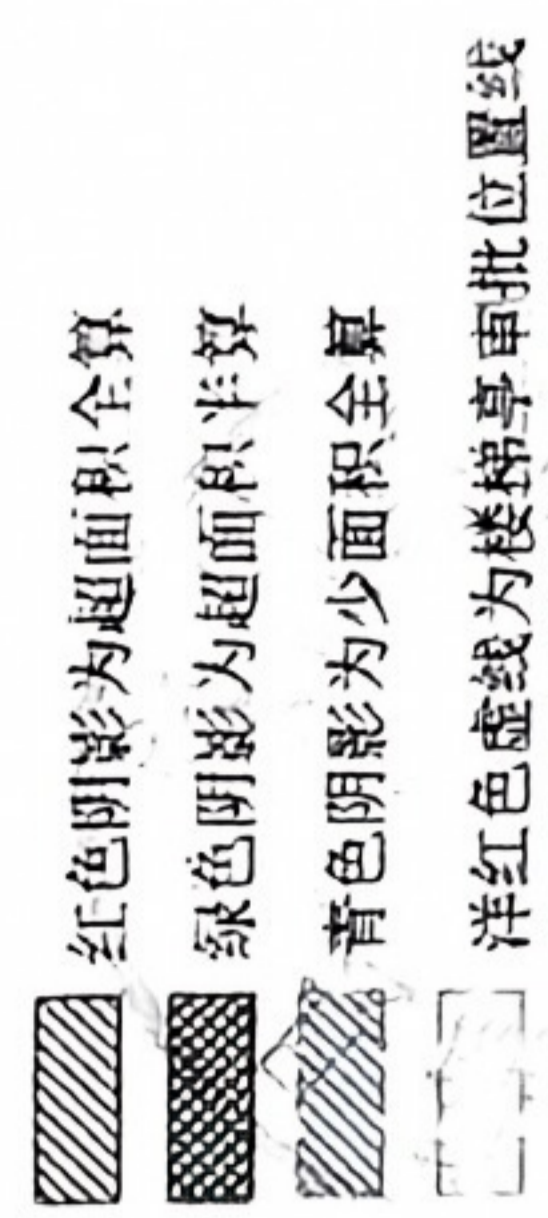 红色阴影为超面积全算
绿色阴影为超面积半算
青色阴影为少面积全算
洋红色虚线为楼梯亭审批位置线